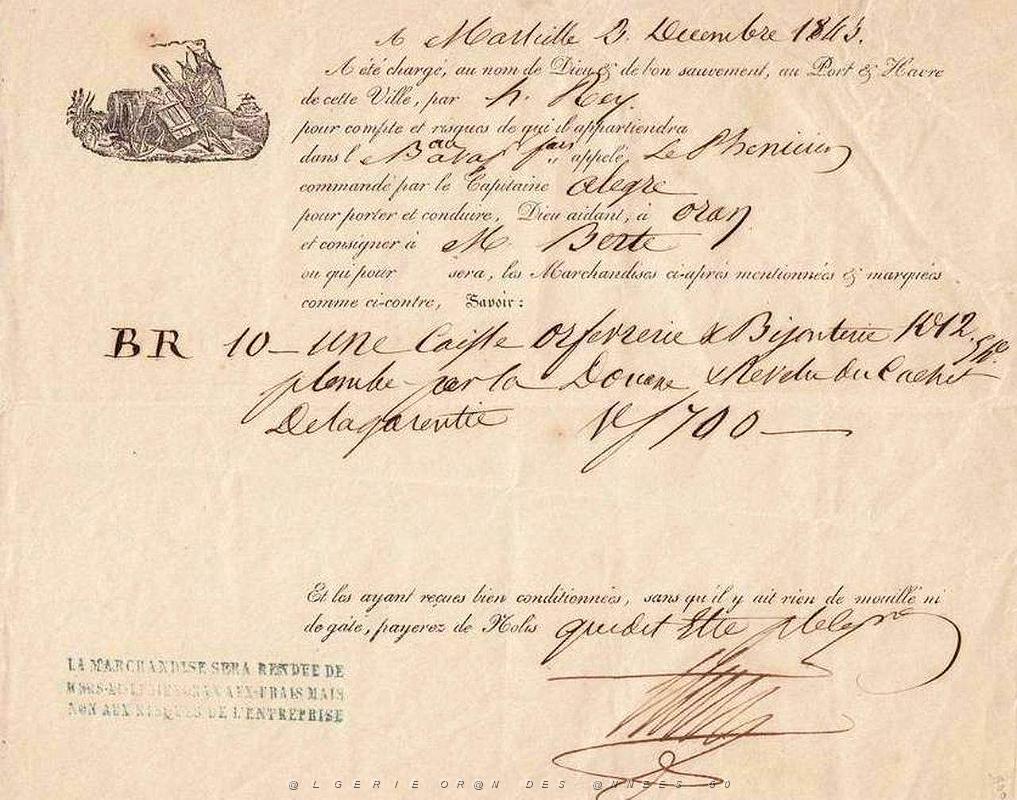 A Marseille 2. Decembre 1843.
A été chargé, au nom de Dieu & de bon sauvement, au Port & Havre
de cette Ville, par h. Rey.
pour compte et risques de qui il appartiendra
dans l appelé, Le Phenicien
commandé par le Capitaine alegre
pour porter et conduire, Dieu aidant, à oran
et consigner à M. Berte
ou qui pour sera, les Marchandises ci-après mentionnées & marquées
comme ci-contre, Savoir :
BR 10 - une Caisse orfevrerie & Bijouterie
plombe par la Douane & Revetu du Cachet
De la garentie Vf 700 —
Et les ayant reçues bien conditionnées, sans qu'il y ait rien de mouillé ni
de gâté, payerez de Nolis
LA MARCHANDISE SERA RENDUE DE
AUX FRAIS MAIS
NON AUX RISQUES DE L'ENTREPRISE
@LGERIE OR@N DES @NNEES 60